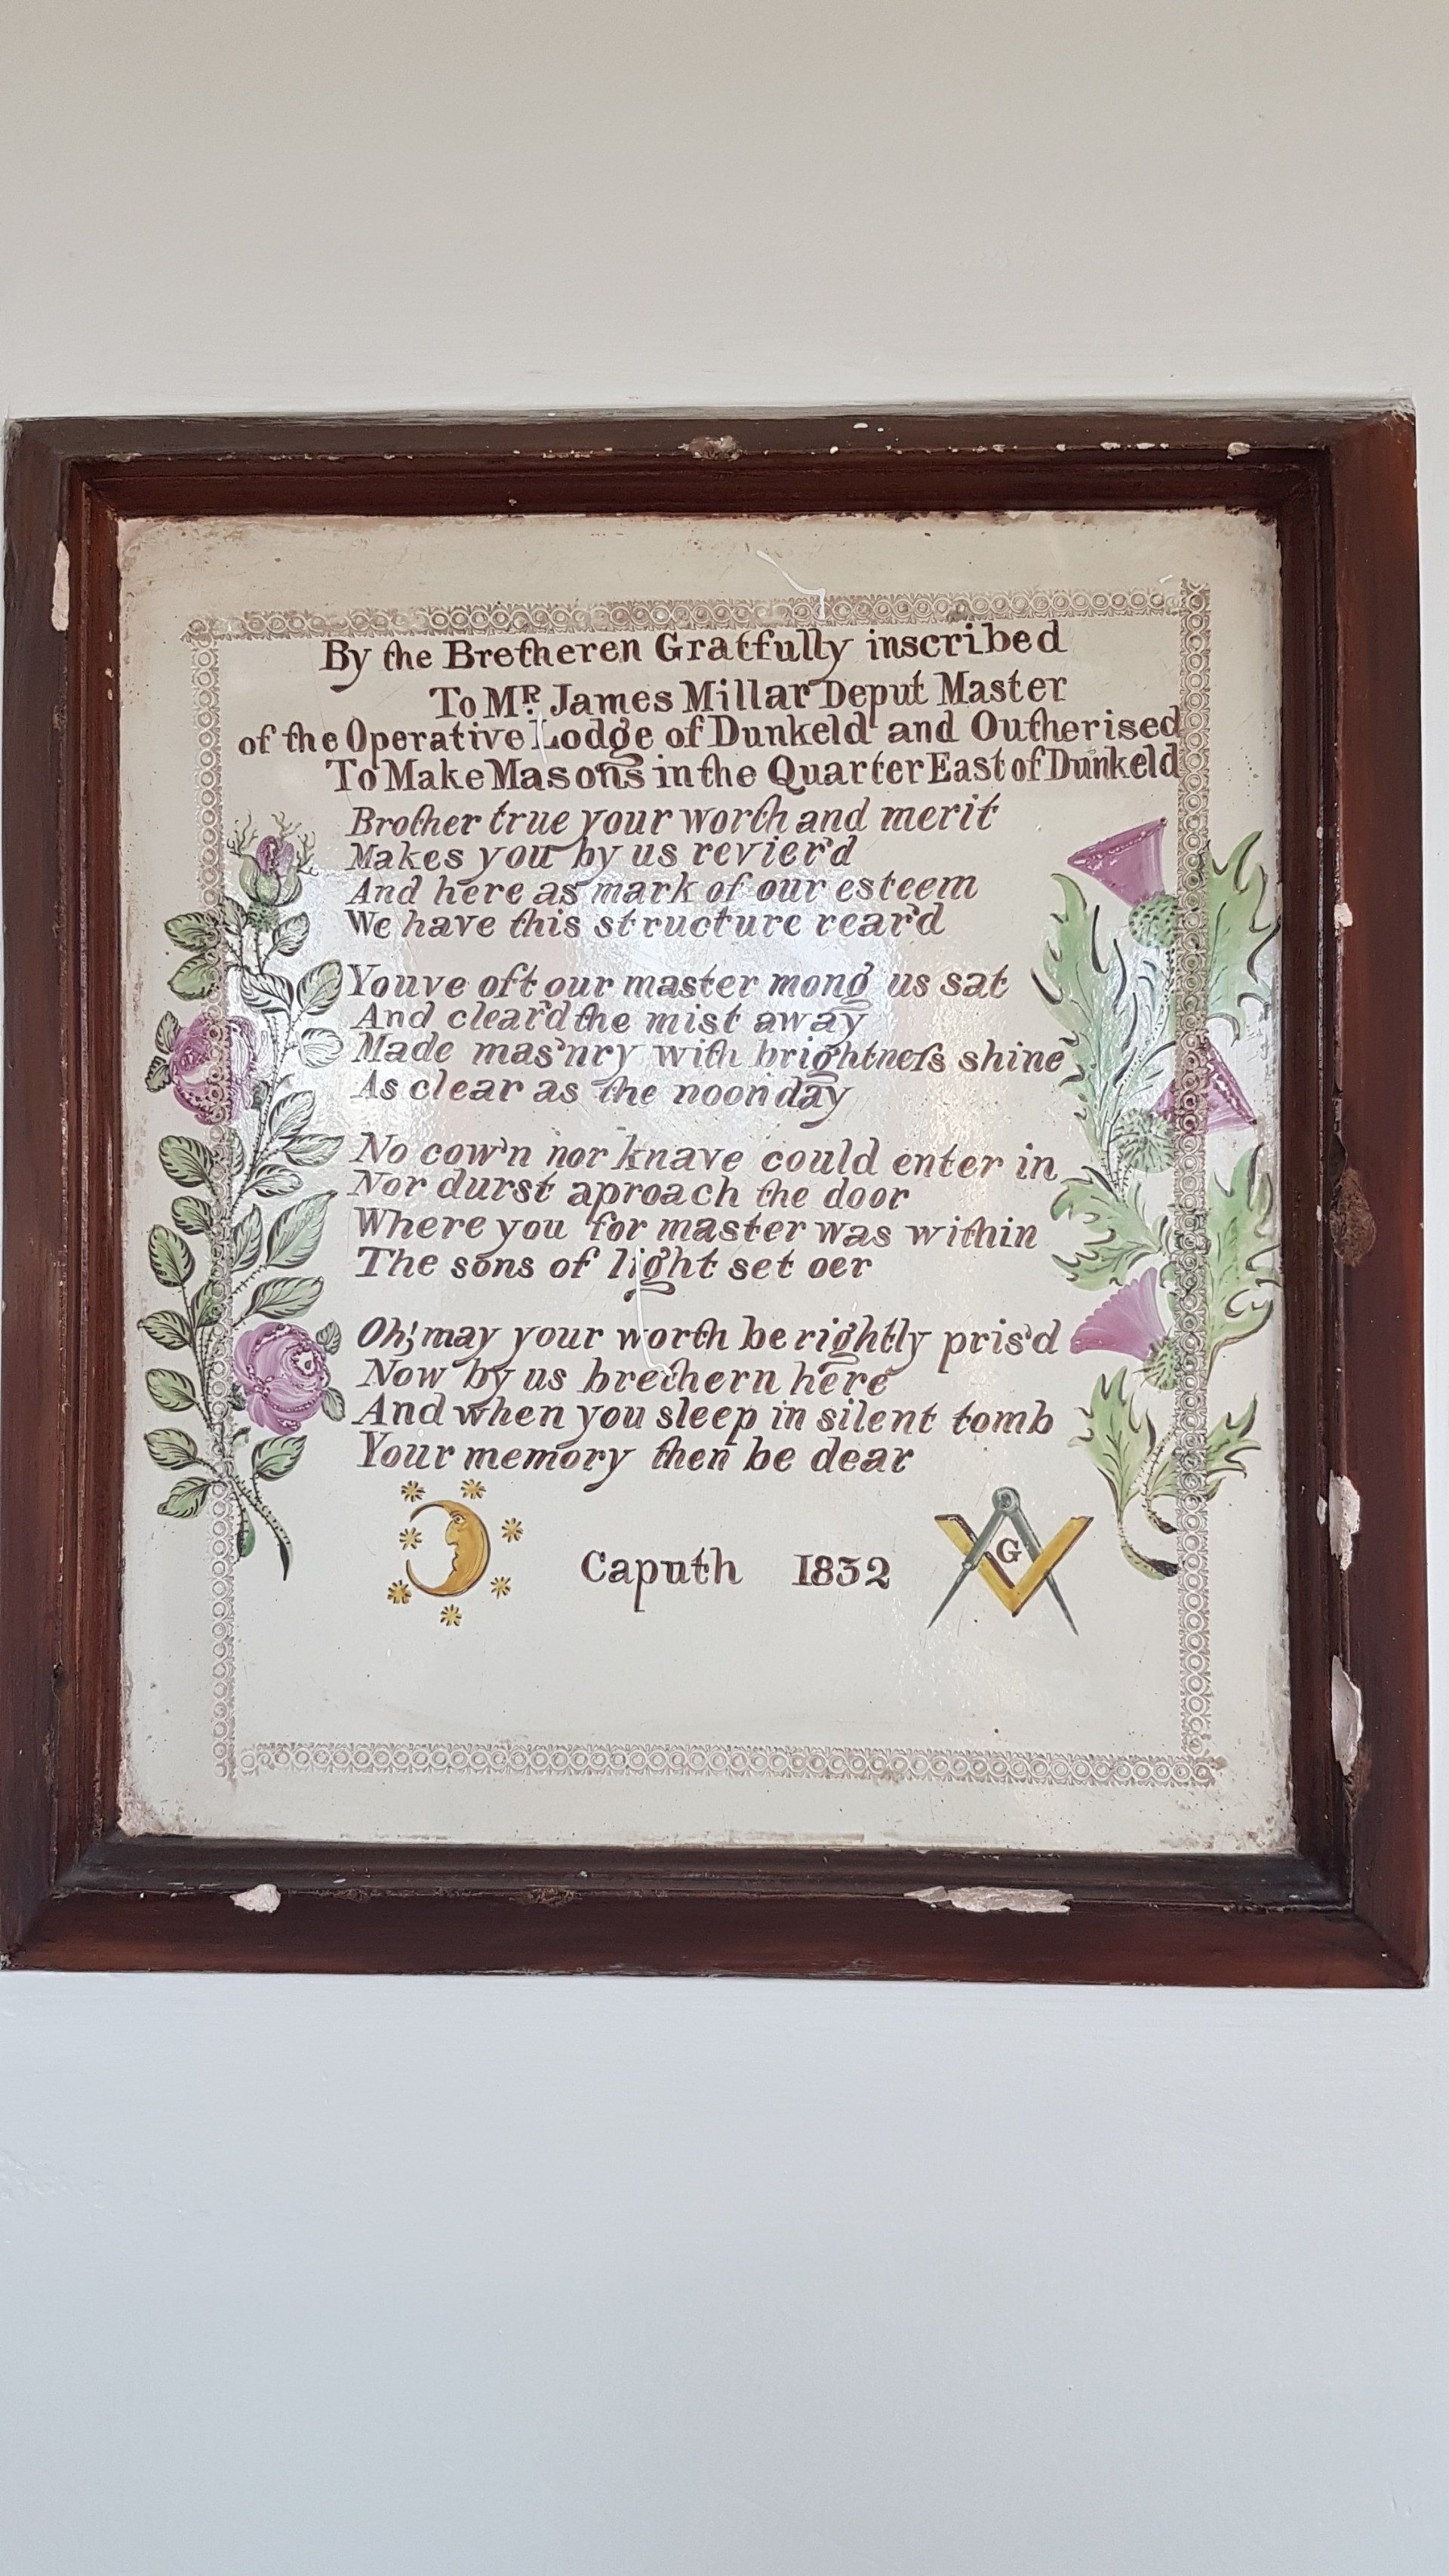 By the Bretheren Gratfully inscribed
To Mr. James Millar Deput Master
of the Operative Lodge of Dunkeld and Outherised
To Make Masons in the Quarter East of Dunkeld
Brother true your worth and merit
Makes you by us revier'd
And here as mark of our esteem
We have this structure rear'd
Youve oft our master mong us sat
And clear'd the mist away
Made mas'nry with brightneſs shine
As clear as the noon day
No cow'n nor knave could enter in
Nor durst aproach the door
Where you for master was within
The sons of light set oer
Oh! may your worth be rightly pris'd
Now by us brethern here
And when you sleep in silent tomb
Your memory then be dear
Caputh 1832
G